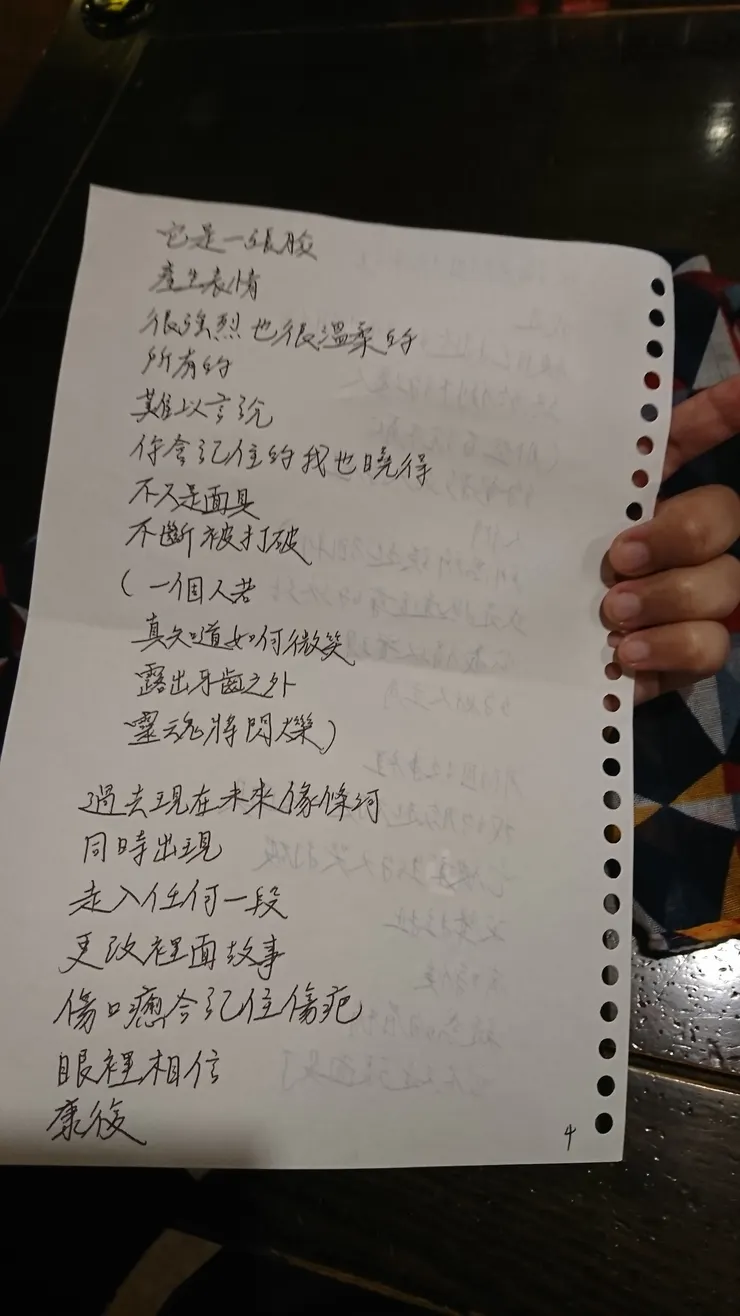 它是一張臉
產生表情
很強烈也很溫柔的
所有的
難以言說
你會記住的我也曉得
不只是面具
不斷被打破
(一個人若
真知道如何微笑
露出牙齒之外
靈魂將閃爍)
過去現在未來像條河
同時出現
走入任何一段
更改裡面故事
傷口癒合記住傷疤
眼裡相信
康復
4